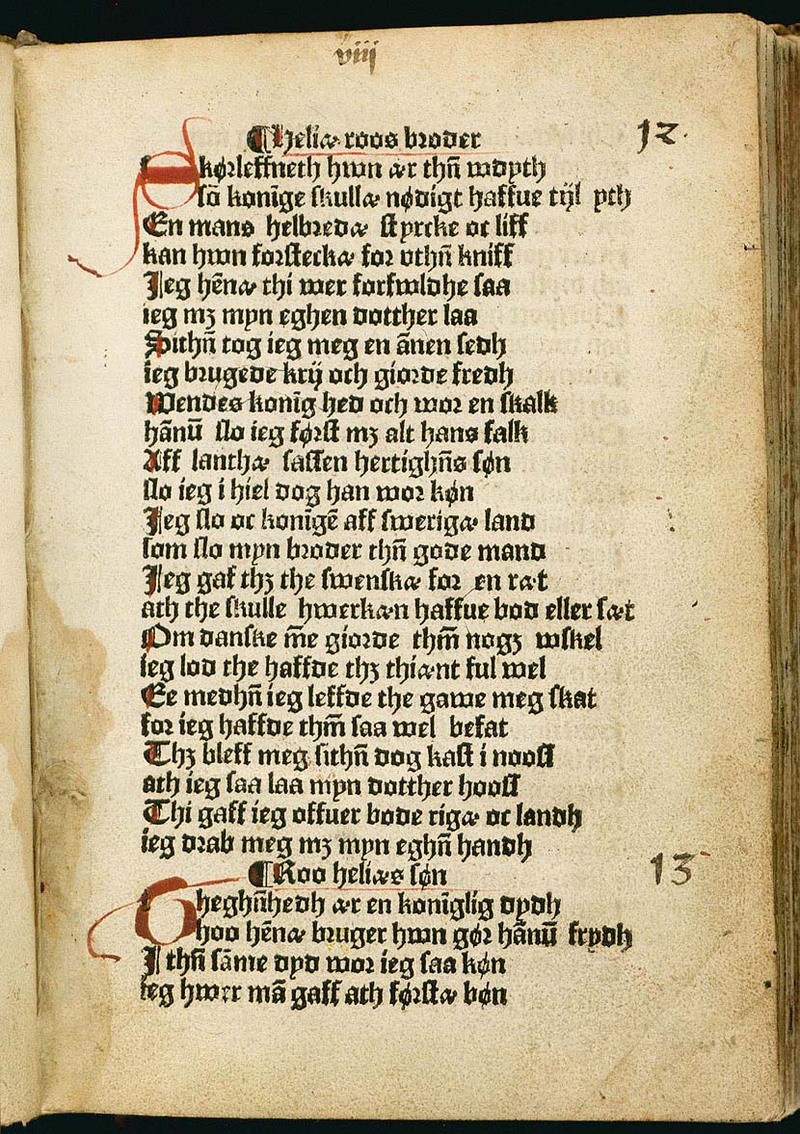 viii
¶Heliæ roos broder
12
Skørleffneth hwn ær thn̄ wdyth
sō konīge skullæ nødigt haffue tijl yth
En mans helbredæ styrcke oc liff
kan hwn forsteckæ for vthn̄ kniff
Jeg hēnæ thi wer forfwldhe saa
ieg mꝫ myn eghen dotther laa
Sithn̄ tog ieg meg en ānen sedh
ieg brugede krij och giorde fredh
Wendes konīg hed och wor en skalk
hānū slo ieg først mꝫ alt hans falk
Aff lanthæ sassen hertighn̄s søn
slo ieg i hiel dog han wor køn
Jeg slo oc konīgē aff swerigæ land
som slo myn broder thn̄ gode mand
Jeg gaf thꝫ the swenskæ for en ræt
ath the skulle hwerkæn haffue bod eller sæt
Om danske m̄e giorde thm̄ nogꝫ wskel
ieg lod the haffde thꝫ thiænt ful wel
Ee medhn̄ ieg leffde the gawe meg skat
for ieg haffde thm̄ saa wel befat
Thꝫ bleff meg sithn̄ dog kast i noosſ
ath ieg saa laa myn dotther hoosſ
Thi gaff ieg offuer bode rigæ oc landh
ieg drab meg mꝫ myn eghn̄ handh
¶Roo heliæs søn
13
Gheghn̄hedh ær en konīglig dydh
hoo hēnæ bruger hwn gør hānū frydh
J thn̄ sāme dyd wor ieg saa køn
ieg hwer mā gaff ath førstæ bøn